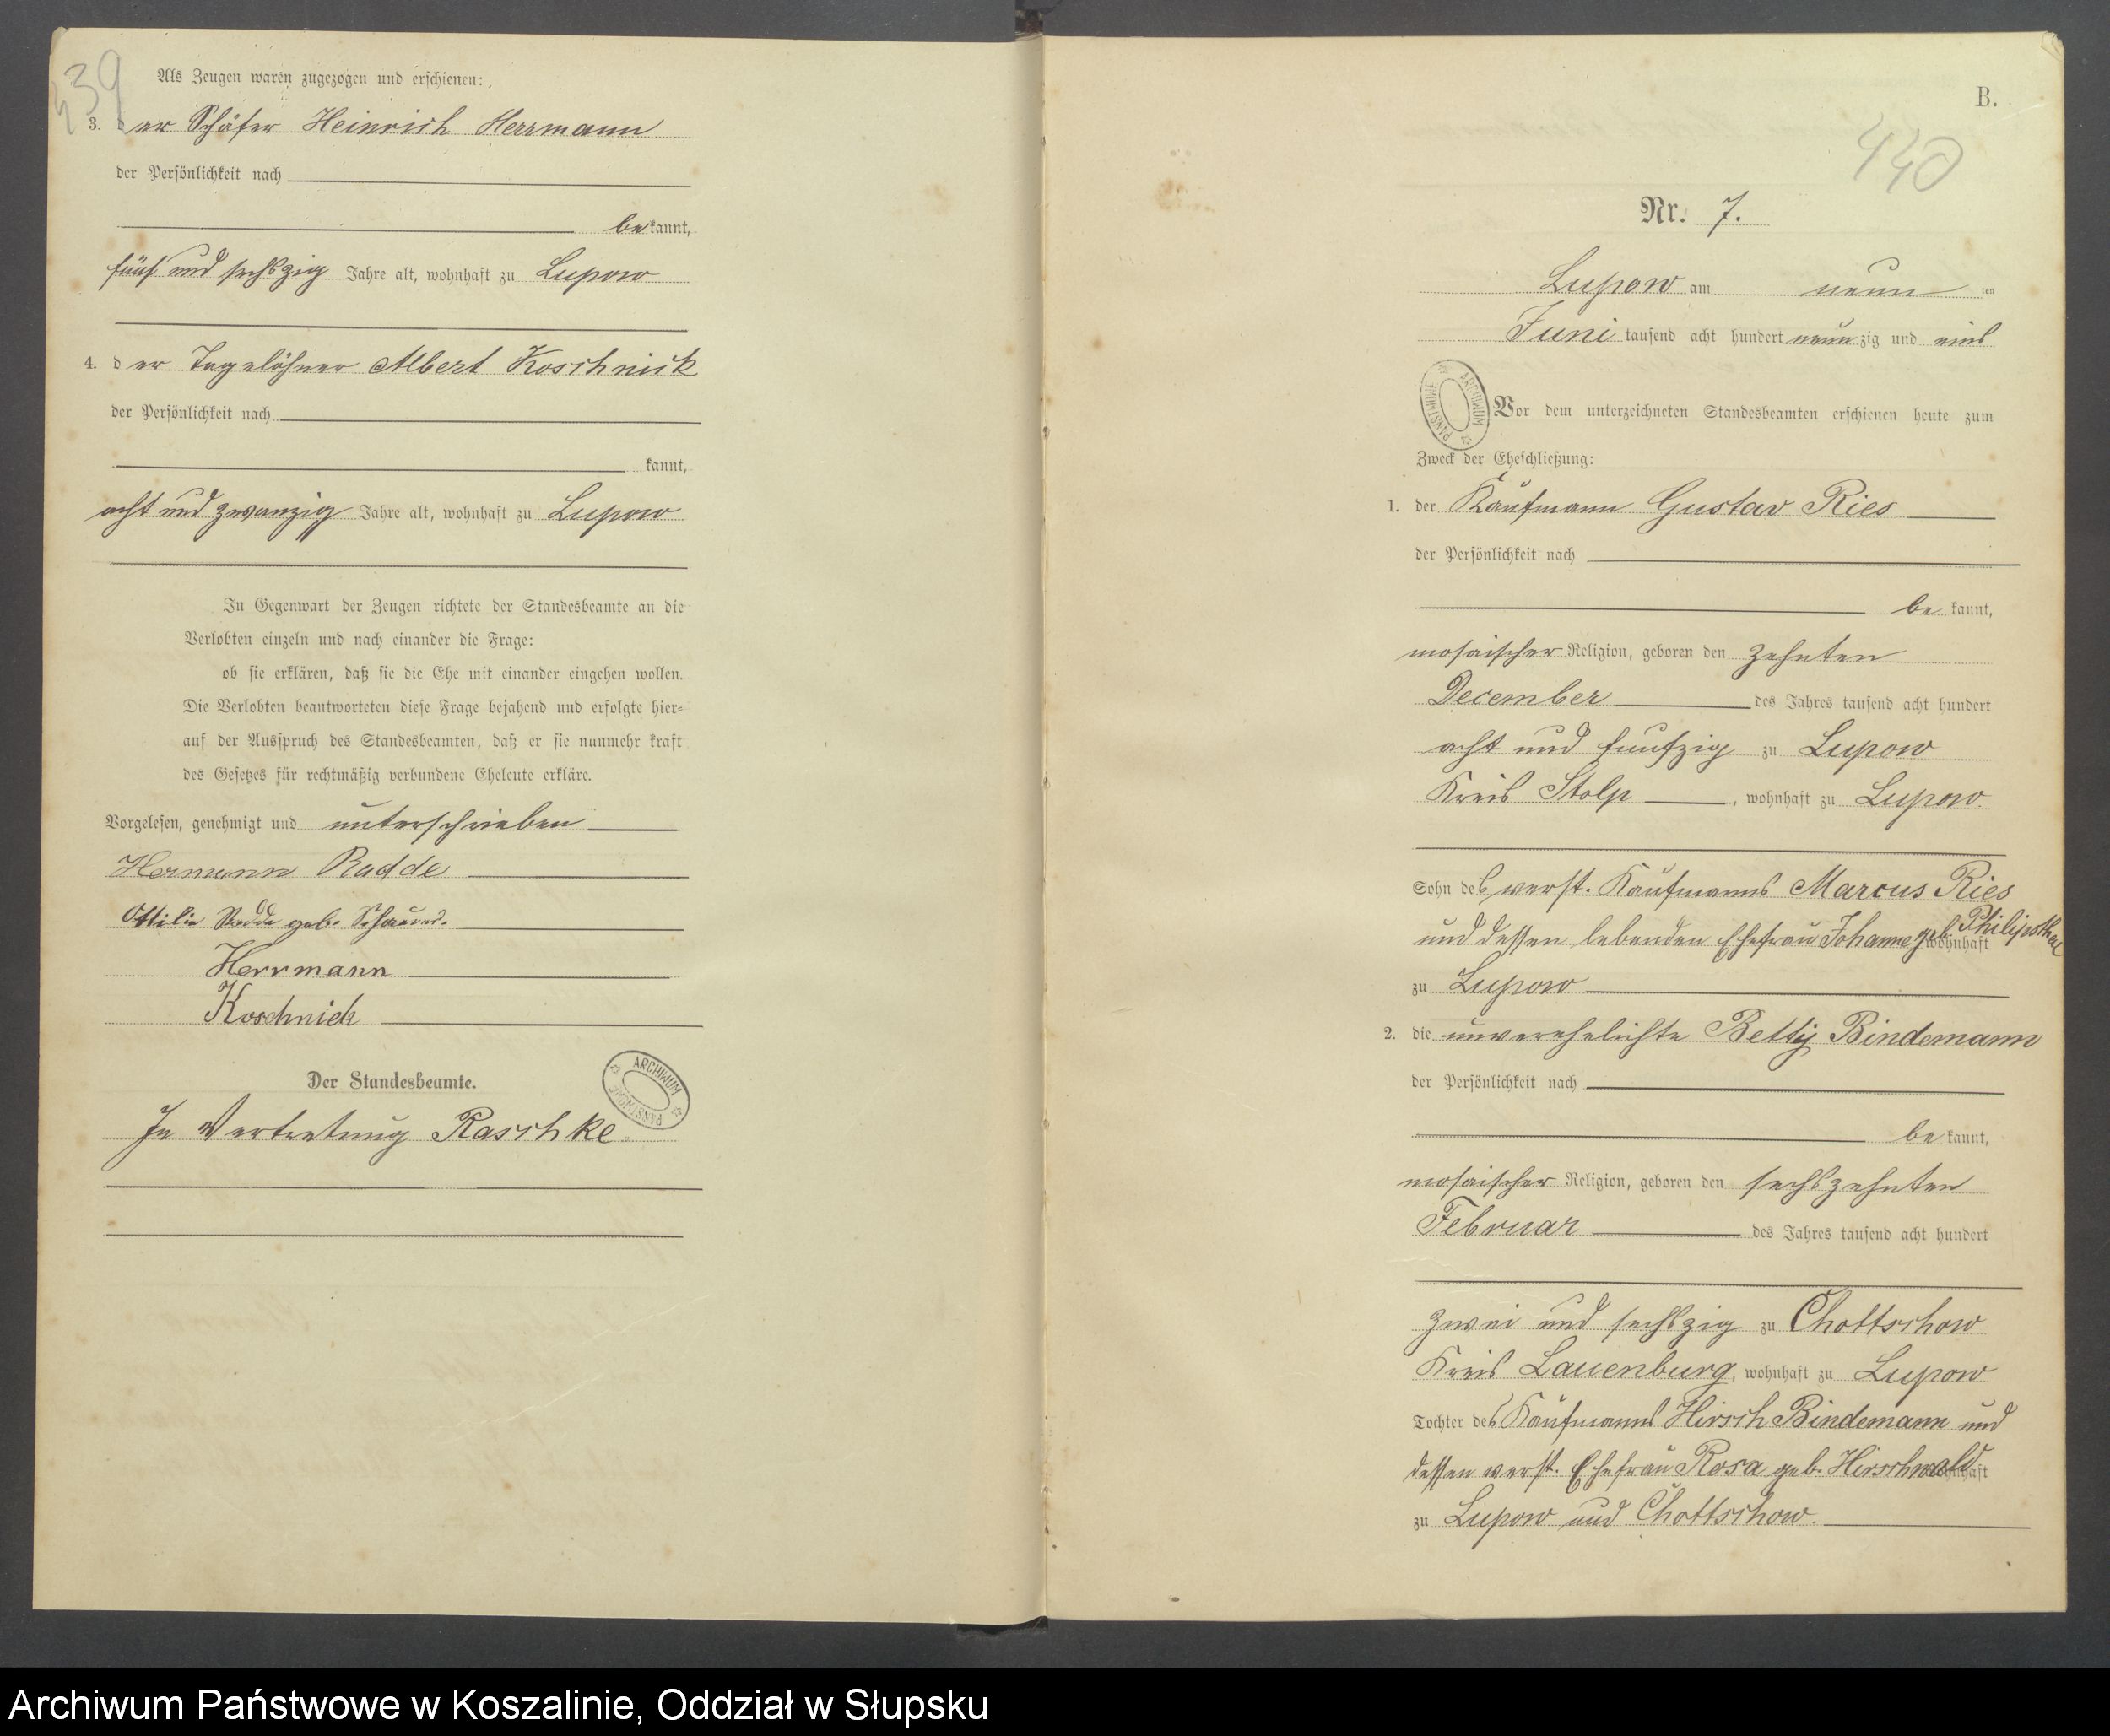 439
Als Zeugen waren zugezogen und erschienen:
3. der Schäfer Heinrich Herrmann
der Persönlichkeit nach
bekannt,
fünf und sechszig Jahre alt, wohnhaft zu Lupow
4. der Tagelöhner Albert Koschnick
der Persönlichkeit nach
kannt,
acht und zwanzig Jahre alt, wohnhaft zu Lupow
In Gegenwart der Zeugen richtete der Standesbeamte an die
Verlobten einzeln und nach einander die Frage:
ob sie erklären, daß sie die Ehe mit einander eingehen wollen.
Die Verlobten beantworteten diese Frage bejahend und erfolgte hier-
auf der Ausspruch des Standesbeamten, daß er sie nunmehr kraft
des Gesetzes für rechtmäßig verbundene Eheleute erkläre.
Vorgelesen, genehmigt und unterschrieben
Hermann Radde
Ottilie Radde geb.
Herrmann
Koschnick
ARCHIWUM PAŃSTWOWE
Der Standesbeamte.
In Vertretung Raschke.
B.
440
Nr. 7.
Lupow am neun ten
Juni tausend acht hundert neunzig und eins
ARCHIWUM PAŃSTWOWE
Vor dem unterzeichneten Standesbeamten erschienen heute zum
Zweck der Eheschließung:
1. der Kaufmann Gustav Ries
der Persönlichkeit nach
be kannt,
mosaischer Religion, geboren den zehnten
December des Jahres tausend acht hundert
acht und funfzig zu Lupow
Kreis Stolp, wohnhaft zu Lupow.
Sohn des verst. Kaufmanns Marcus Ries
und dessen lebenden Ehefrau Johanne geb. Philipsthal wohnhaft
zu Lupow
2. die unverehelichte Betty Bindemann
der Persönlichkeit nach
be kannt,
mosaischer Religion, geboren den sechszehnten
Februar des Jahres tausend acht hundert
zwei und sechszig zu Chottschow
Kreis Lauenburg, wohnhaft zu Lupow
Tochter des Kaufmanns Hirsch Bindemann und
dessen verst. Ehefrau Rosa geb. Hirschwald wohnhaft
zu Lupow und Chottschow.
Archiwum Państwowe w Koszalinie, Oddział w Słupsku